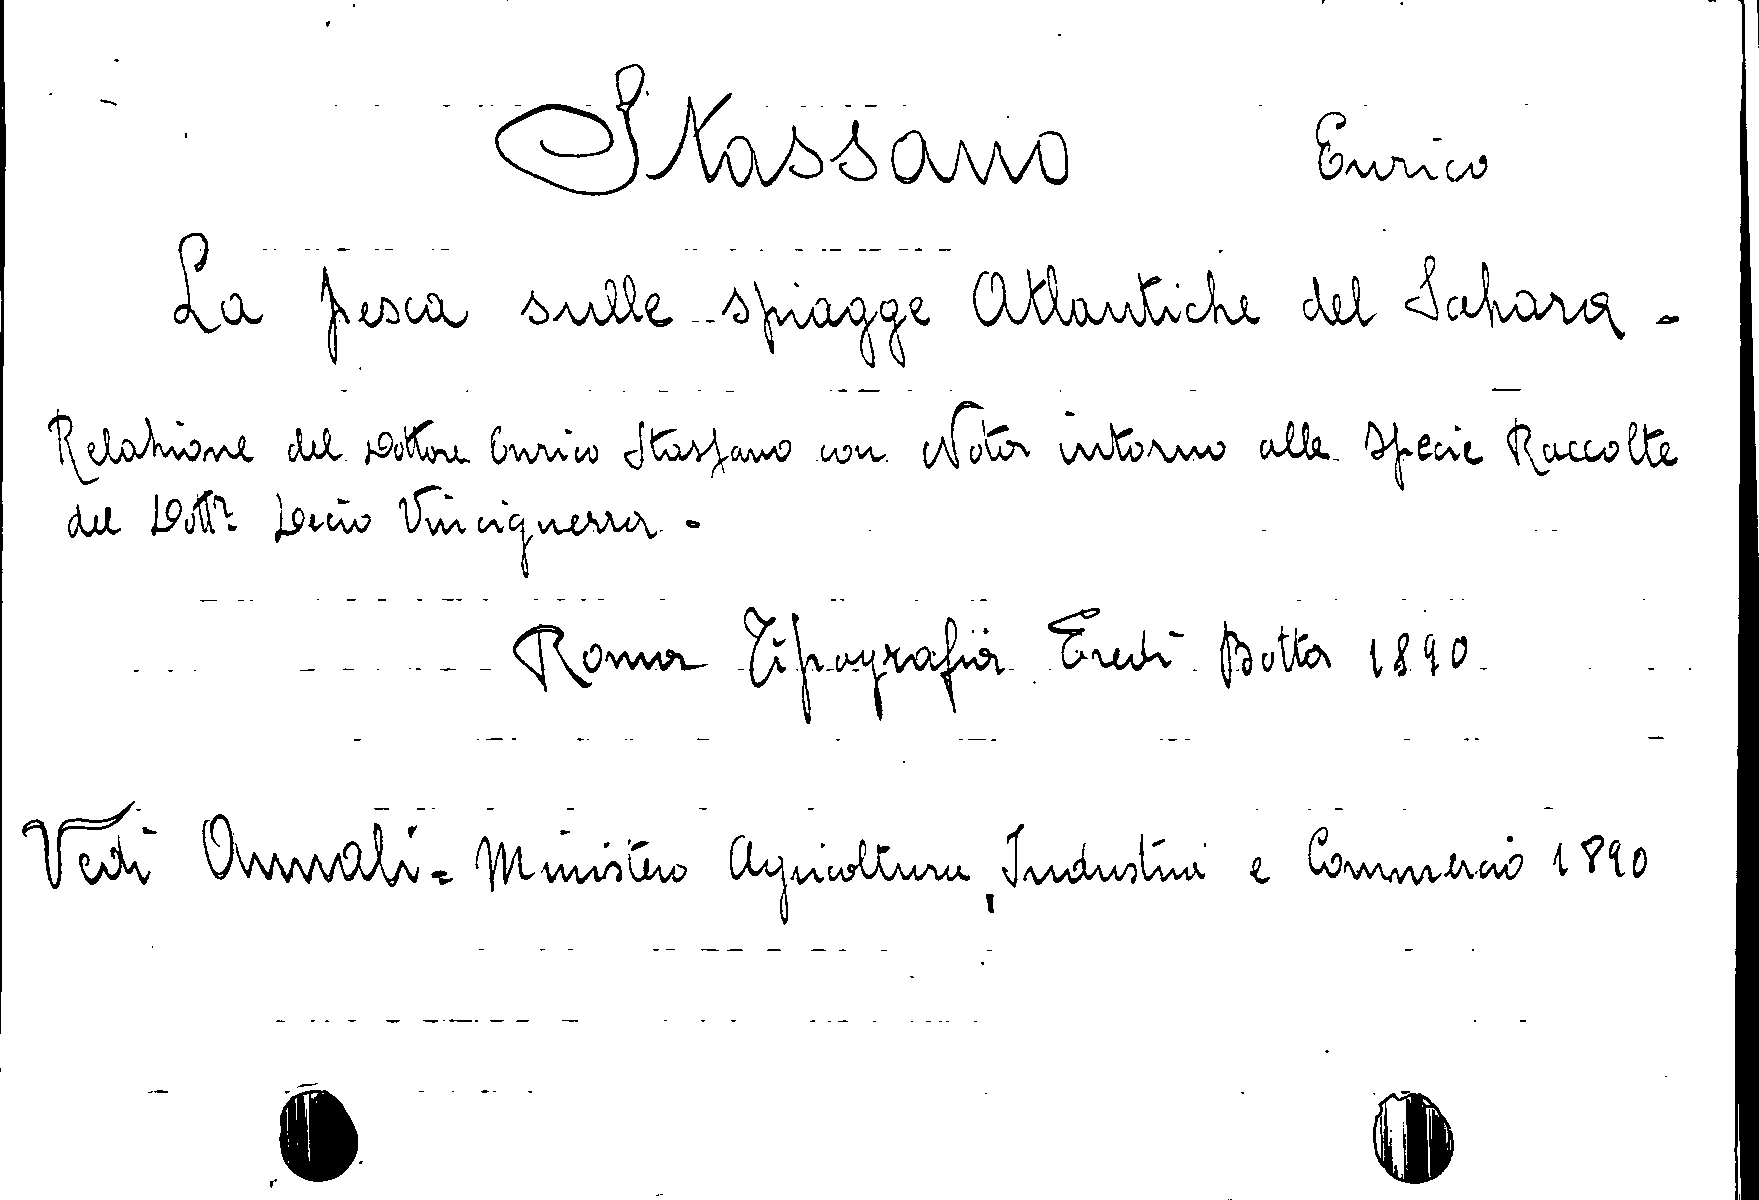 Stassano Enrico
La pesca sulle spiagge Atlantiche del Sahara -
Relazione del Dottore Enrico Stassano con Nota intorno alle specie Raccolte
del Dottr Decio Vinciguerra -
Roma Tipografia Eredi Botta 1890
Vedi Annali = Ministero Agricoltura, Industria e Commercio 1890